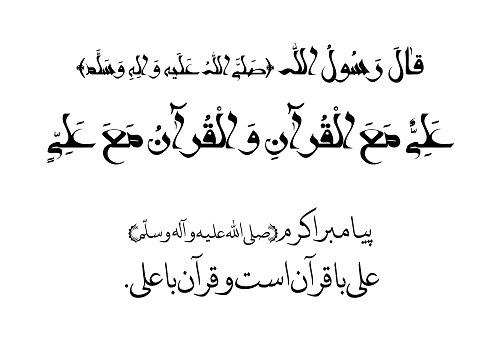 قالَ رَسُولُ اللّه ﴿صَلَّى اللّهُ عَلَيهِ وَ الِهِ وَسَلَّم﴾
عَلِىٌّ مَعَ الْقُرآنِ وَ الْقُرآنُ مَعَ عَلِىٍّ
پیامبر اکرم ﴿صلی الله علیه و آله و سلّم﴾
علی با قرآن است و قرآن با علی.